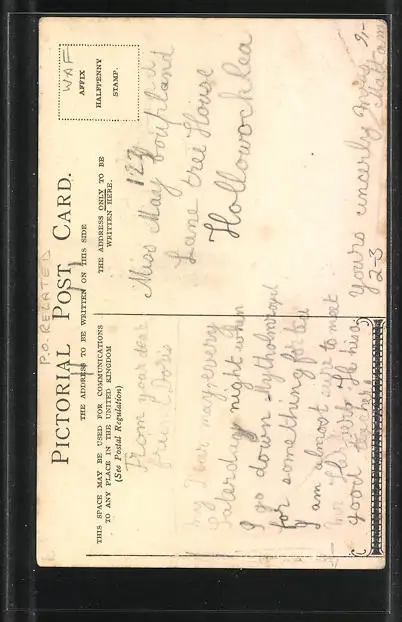 P.O. RELATED
PICTORIAL POST CARD.
THE ADDRESS TO BE WRITTEN ON THIS SIDE
THIS SPACE MAY BE USED FOR COMMUNICATIONS
TO ANY PLACE IN THE UNITED KINGDOM
(See Postal Regulation)
THE ADDRESS ONLY TO BE
WRITTEN HERE.
WAF
AFFIX
HALFPENNY
STAMP.
From your dear
friend Doris
my Dear may every
Saterday night when
I go down
for something for tea
I am almost sure to meet
good teacher
127
Miss May Coupland
Lane tree House
Hollowocklea
yours sincerly
2-3